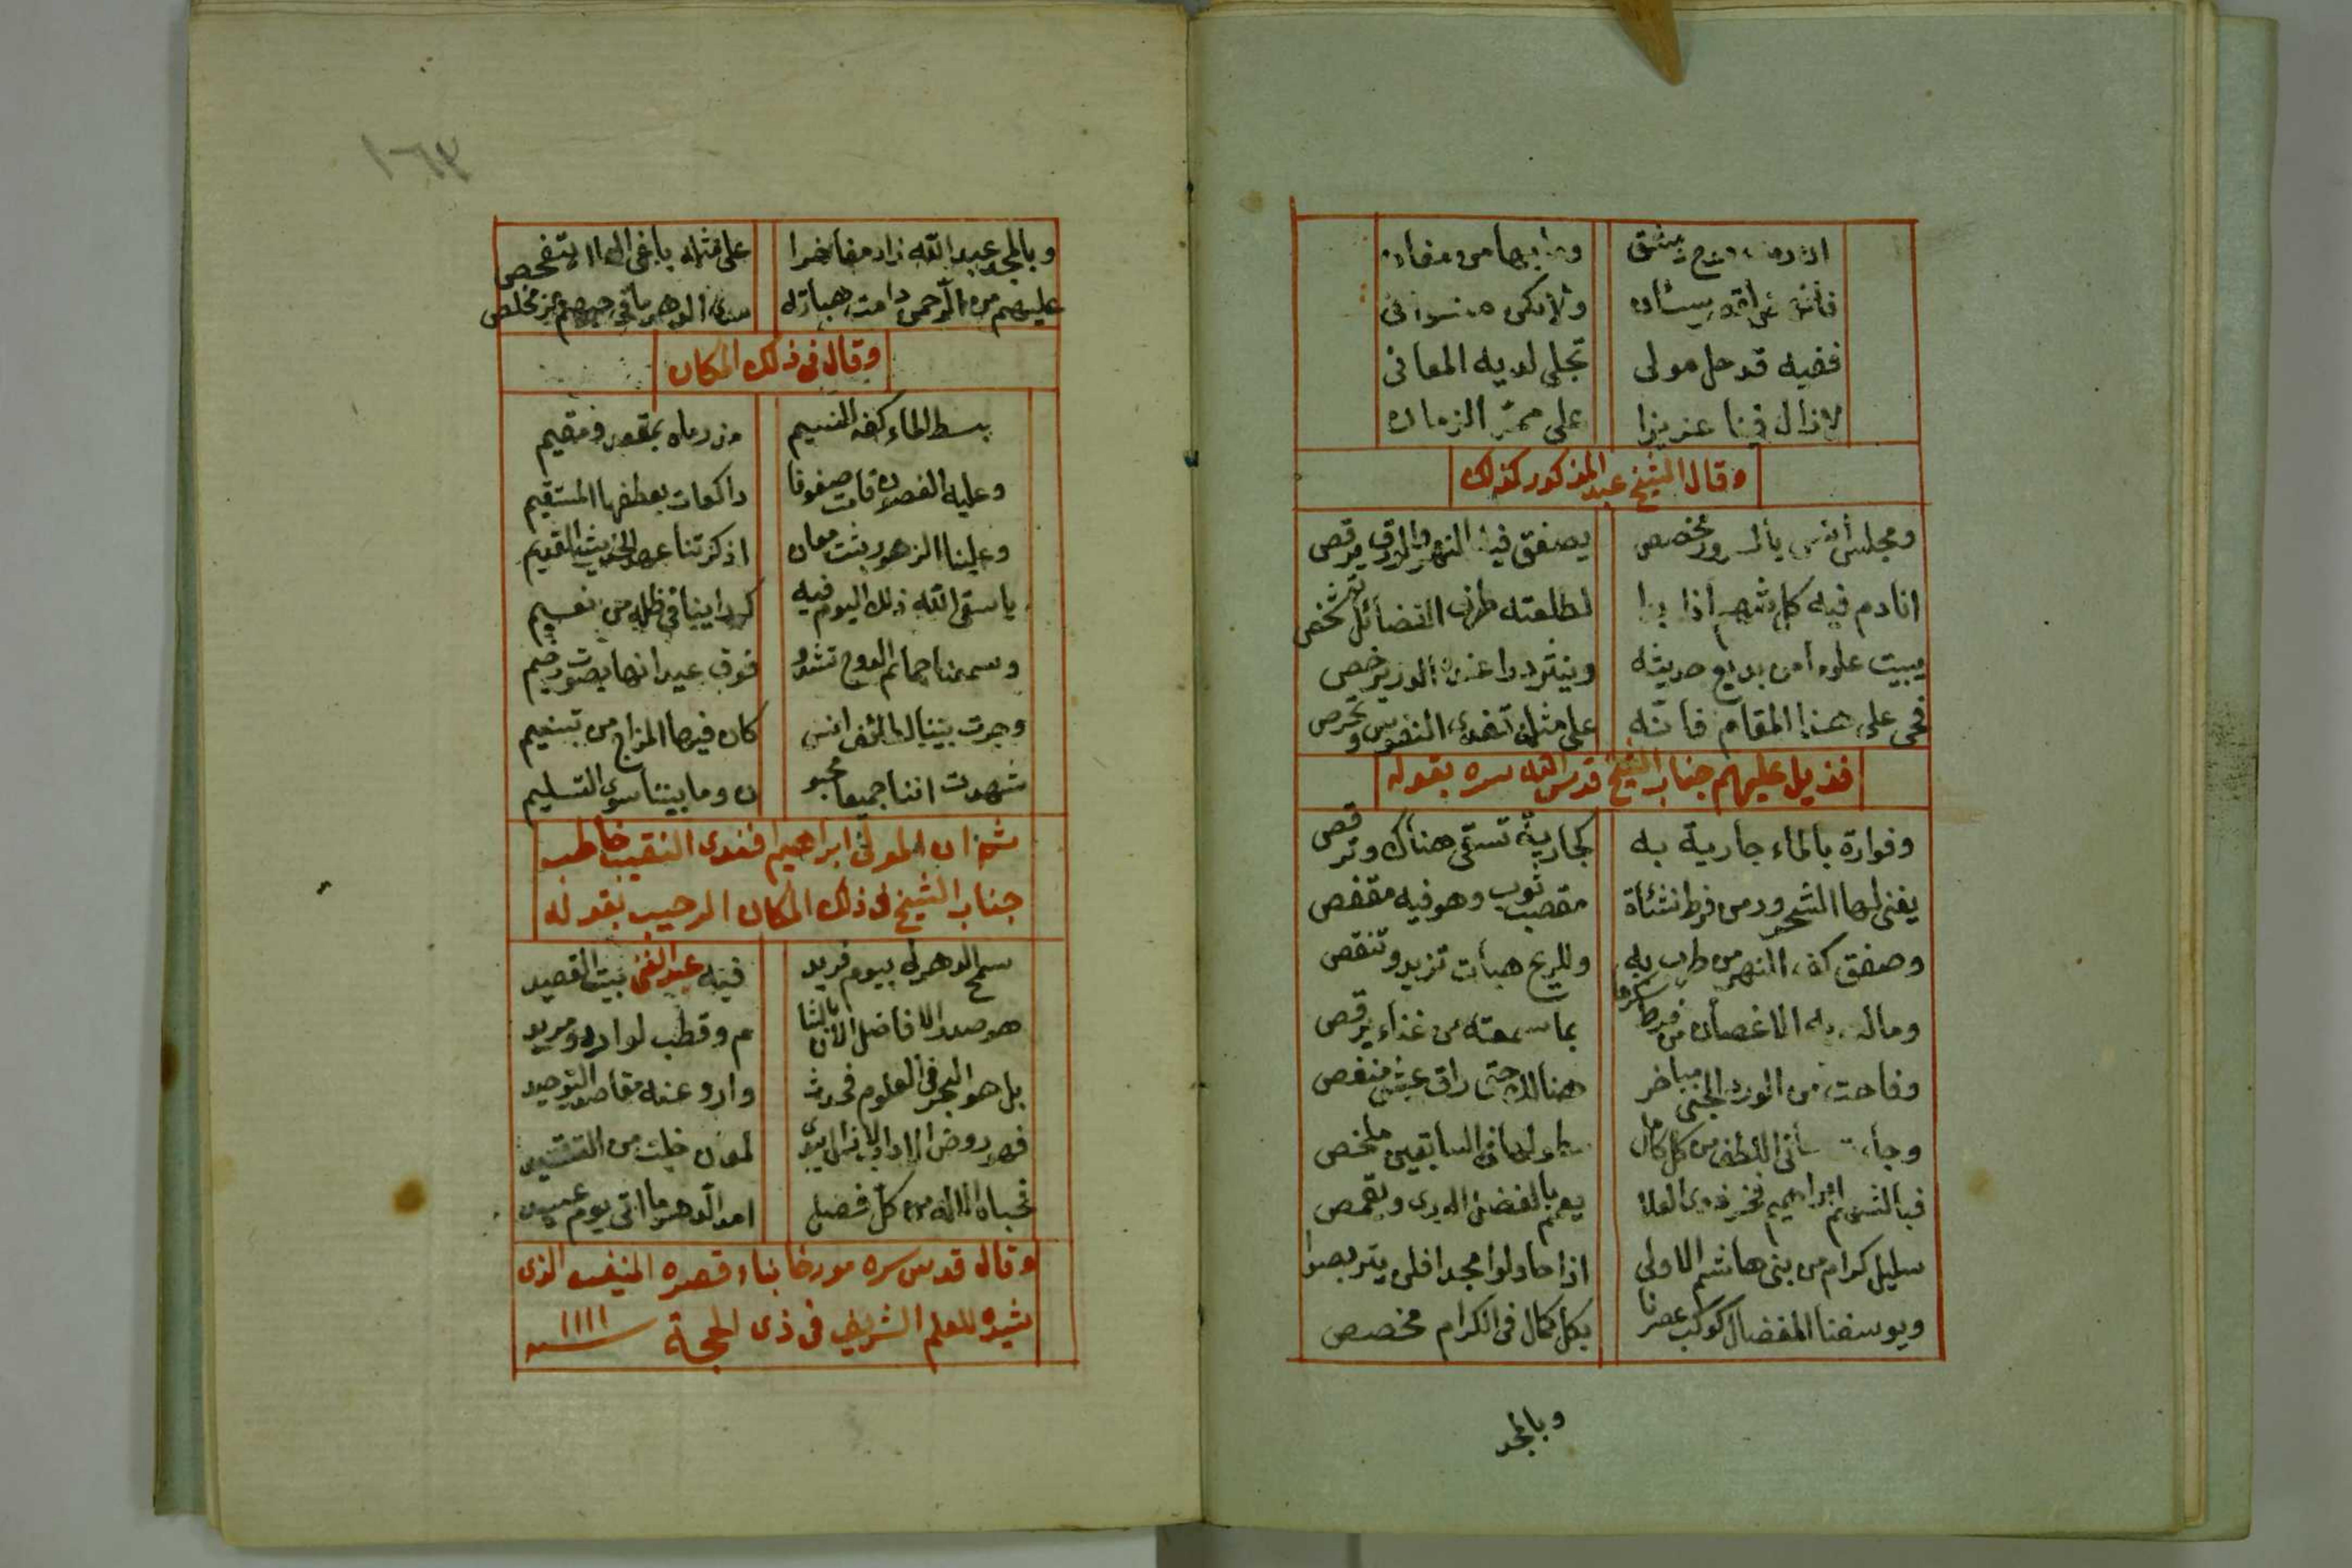 فضيه قد حل مولى تجلى لديه المعانى
لازال فينا عزيزا على ممر الزمان
وقال الشيخ عبد المذكور كذلك
ومجلس أنس بالسرور مخصص يصفق فيه النهر والورق يرقص
انادم فيه كل شهم اذا بدا لطلعته طرف الفضائل تشخص
يبيت علوما من بديع حديثه وينثر درا عنده الدر يرخص
فحى على هذا المقام فانه على مثله تغدى النفوس وتحرص
فذيل عليهم جناب الشيخ قدس الله سره بقوله
وفوارة بالماء جارية به كجارية تسقى هناك وترقص
يغنى لها الشحرور من فرط نشأة مقصب ثوب وهو فيه مقفص
وصفق كف النهر من طرب به وللريح هبات تزيد وتنقص
ومالت به الاغصان من فرط سكرها بما سمعته من غناء يرقص
وفاحت من الورد الجنى مباخر هنالك حتى راق عيش منغص
يعم بالفضل الورى ويقمص
سليل كرام من بنى هاشم الاولى اذا حاولوا مجدا فلن يتربصوا
ويوسفنا المفضال كوكب عصرنا بكل كمال فى الكرام مخصص
وبالمجد
١٦٣
وبالمجد عبد الله زاد مفاخرا على مثله باغى العلا يتفحص
عليهم من الرحمن دامت هباته
وقال فى ذلك المكان
بسط الماء كفه للنسيم
وعليه الغصون قامت صفوفا راكعات بعطفها المستقيم
وعلينا الزهور بثت معان اذكرتنا عهد الحديث القديم
يا سقى الله ذلك اليوم فيه كم راينا فى ظله من نعيم
وسمعنا حمائم الدوح تشدو فوق عيدانها بصوت رخيم
وجرت بيننا لطائف انس كان فيها المزاج من تسنيم
شهدت اننا جميعا محبو ن وما بيننا سوى التسليم
ثم ان المولى ابراهيم افندى النقيب خاطب
جناب الشيخ فى ذلك المكان الرحيب بقوله
سمح الدهر لى بيوم فريد فيه عبد الغنى بيت القصيد
هو صدر الافاضل الان بالشا م وقطب لوارد ومريد
بل هو البحر فى العلوم فحدث وارو عنه مقاصد التوحيد
فحباه الاله من كل فضل امد الدهر ما اتى يوم عيد
وقال قدس سره مورخا بناء قصره المنيف الذى
شيده للعلم الشريف فى ذى الحجة سنة ١١١١